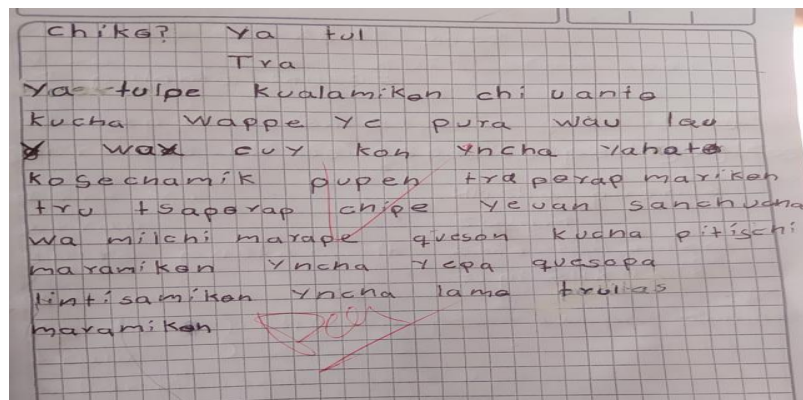 chike? Ya tul
Tra
Ya tulpe kualamikon chi uanto
kucha wappe ye pura wau lau
wax cuy kon yncha yahate
kosechamik pupen tra perap marikon
tru tsaperap chipe yeuan sanchucha
wa milchi marape queson kucha pitischi
maramikon yncha yepa quesopa
lintisamikon yncha lama trulas
maramikon